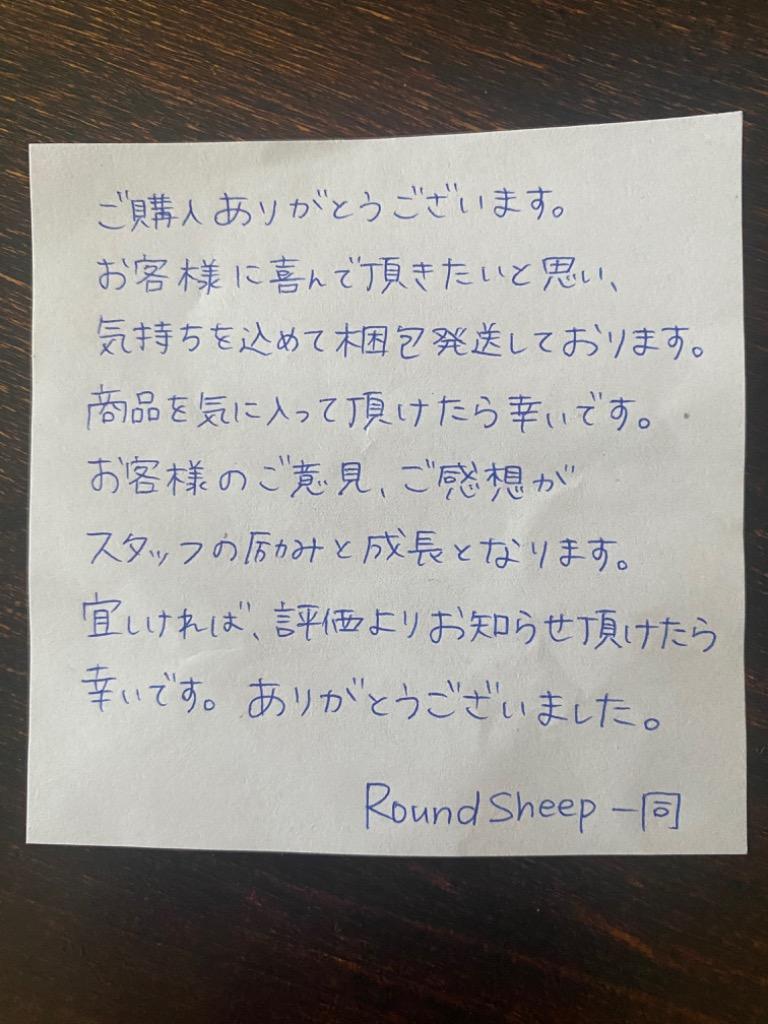 ご購入ありがとうございます。
お客様に喜んで頂きたいと思い、
気持ちを込めて梱包発送しております。
商品を気に入って頂けたら幸いです。
お客様のご意見、ご感想が
スタッフの励みと成長となります。
宜しければ、評価よりお知らせ頂けたら
幸いです。ありがとうございました。
Round Sheep 一同